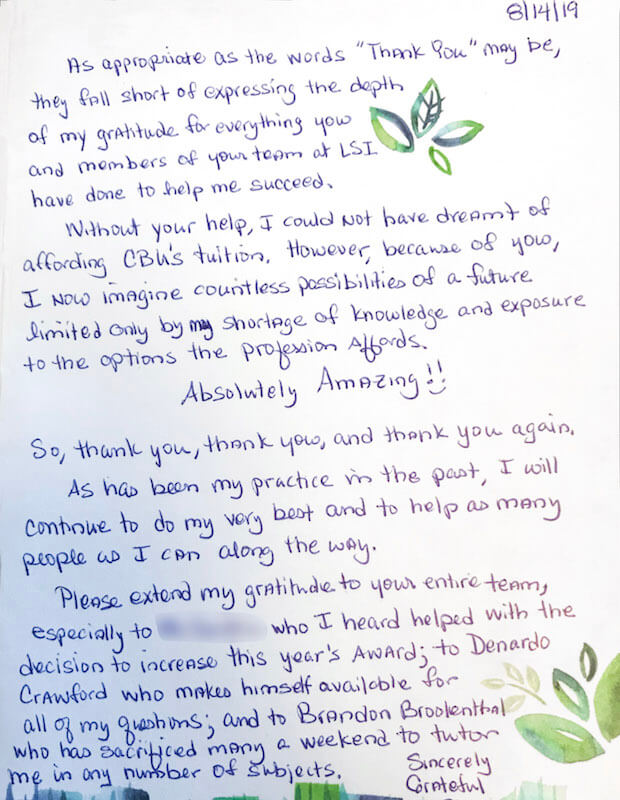 8/14/19
As appropriate as the words "Thank You" may be,
they fall short of expressing the depth
of my gratitude for everything you
and members of your team at LSI
have done to help me succeed.
Without your help, I could not have dreamt of
affording CBU's tuition. However, because of you,
I now imagine countless possibilities of a future
limited only by my shortage of knowledge and exposure
to the options the profession affords.
Absolutely Amazing!!
So, thank you, thank you, and thank you again.
As has been my practice in the past, I will
continue to do my very best and to help as many
people as I can along the way.
Please extend my gratitude to your entire team,
especially to who I heard helped with the
decision to increase this year's award; to Denardo
Crawford who makes himself available for
all of my questions; and to Brandon Brookenthal
who has sacrificed many a weekend to tutor
me in any number of subjects.
Sincerely
Grateful